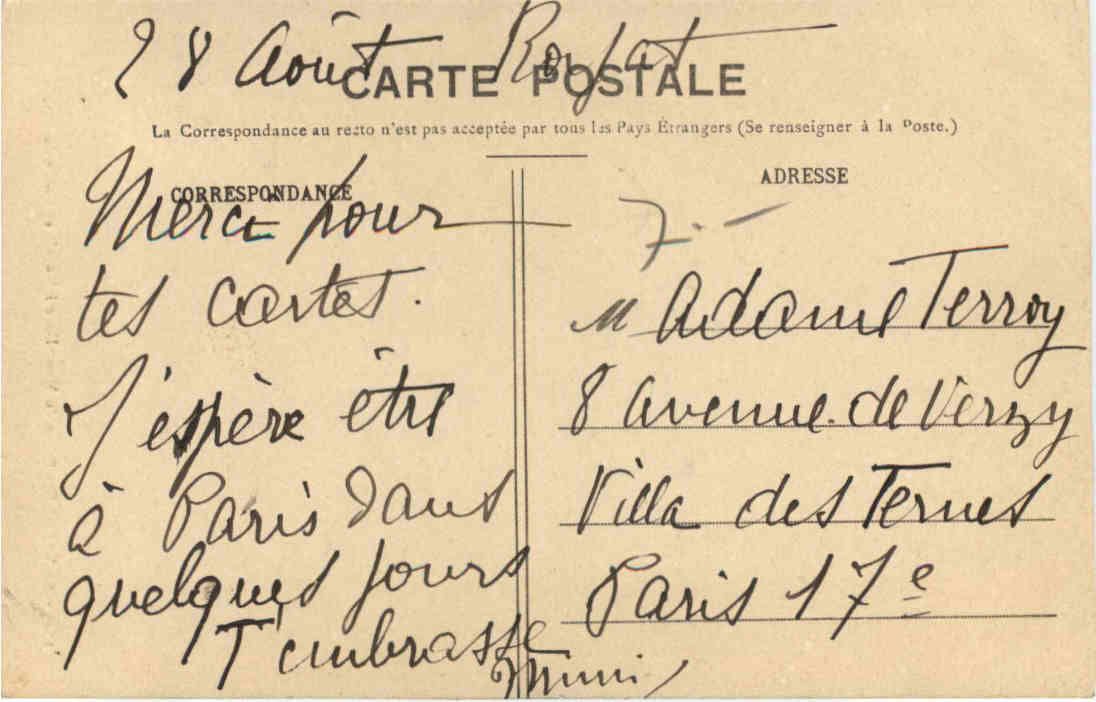 28 Août Royat
CARTE POSTALE
La Correspondance au recto n'est pas acceptée par tous les Pays Étrangers (Se renseigner à la Poste.)
CORRESPONDANCE
Merci pour
tes cartes.
J'espère être
à Paris dans
quelques jours
T'embrasse
Mimi
ADRESSE
7.-
Madame Terroy
8 avenue de Verzy
Villa des Ternes
Paris 17e